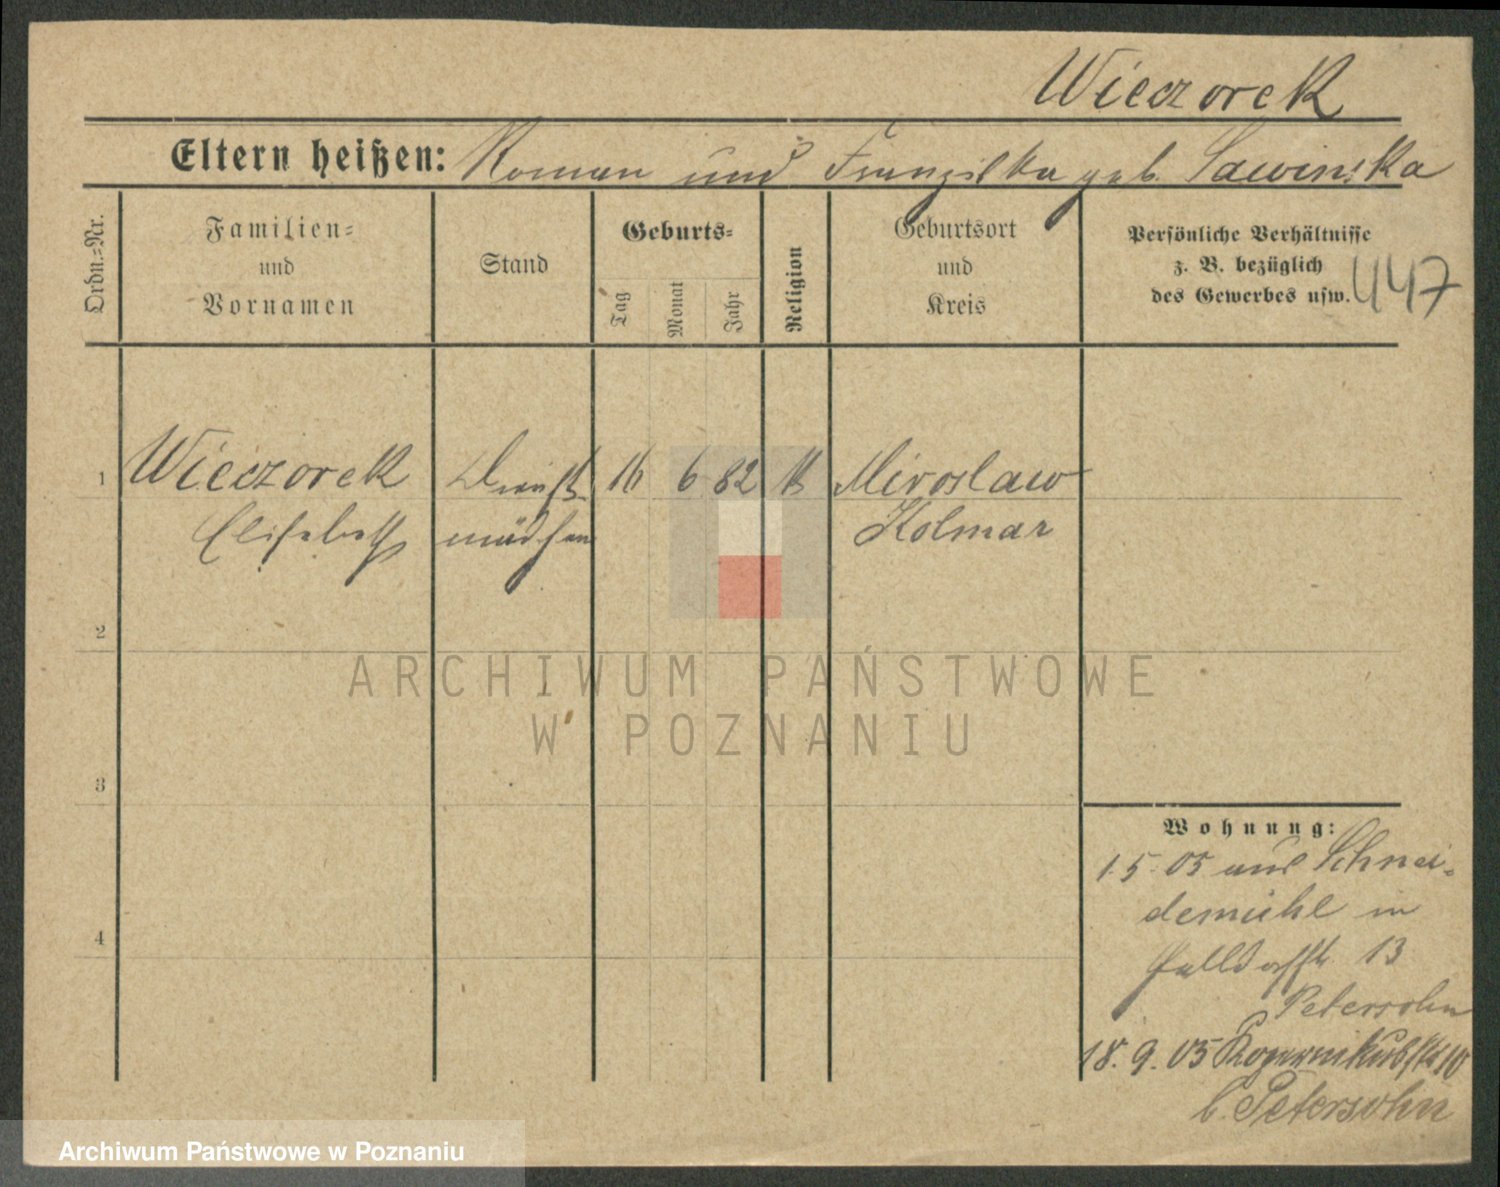 Wieczorek
Eltern heißen: Roman und Franziska geb. Sawinska
Ordn.-Nr.
Familien-
und
Vornamen
Stand
Geburts-
Tag
Monat
Jahr
Religion
Geburtsort
und
Kreis
Persönliche Verhältnisse
z. B. bezüglich
des Gewerbes usw.
447
1 Wieczorek Dienst 16 6 82 k Miroslaw
Elisabeth mädchen Kolmar
2
3
4
Wohnung:
1.5.05 aus Schnei-
demühl in
13
Petersohn
18.9.05 Kopernikusstr 10
b. Petersohn
ARCHIWUM PAŃSTWOWE
W POZNANIU
Archiwum Państwowe w Poznaniu